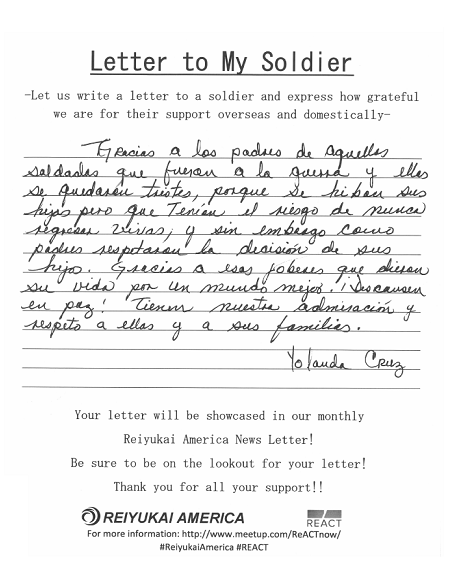 Letter to My Soldier
-Let us write a letter to a soldier and express how grateful
we are for their support overseas and domestically-
Gracias a los padres de aquellos
soldados que fueron a la guerra y ellos
se quedaron tristes, porque se hiban sus
hijos pero que Tenían el riesgo de nunca
regresar vivos, y sin embargo como
padres respetaron la decisión de sus
hijo. Gracias a esos jobenes que dieron
su vida por un mundo mejor. ¡Descansen
en paz! Tienen nuestra admiración y
respeto a ellos y a sus familias.
Yolanda Cruz
Your letter will be showcased in our monthly
Reiyukai America News Letter!
Be sure to be on the lookout for your letter!
Thank you for all your support!!
REIYUKAI AMERICA
REACT
For more information: http://www.meetup.com/ReACTnow/
#ReiyukaiAmerica #REACT